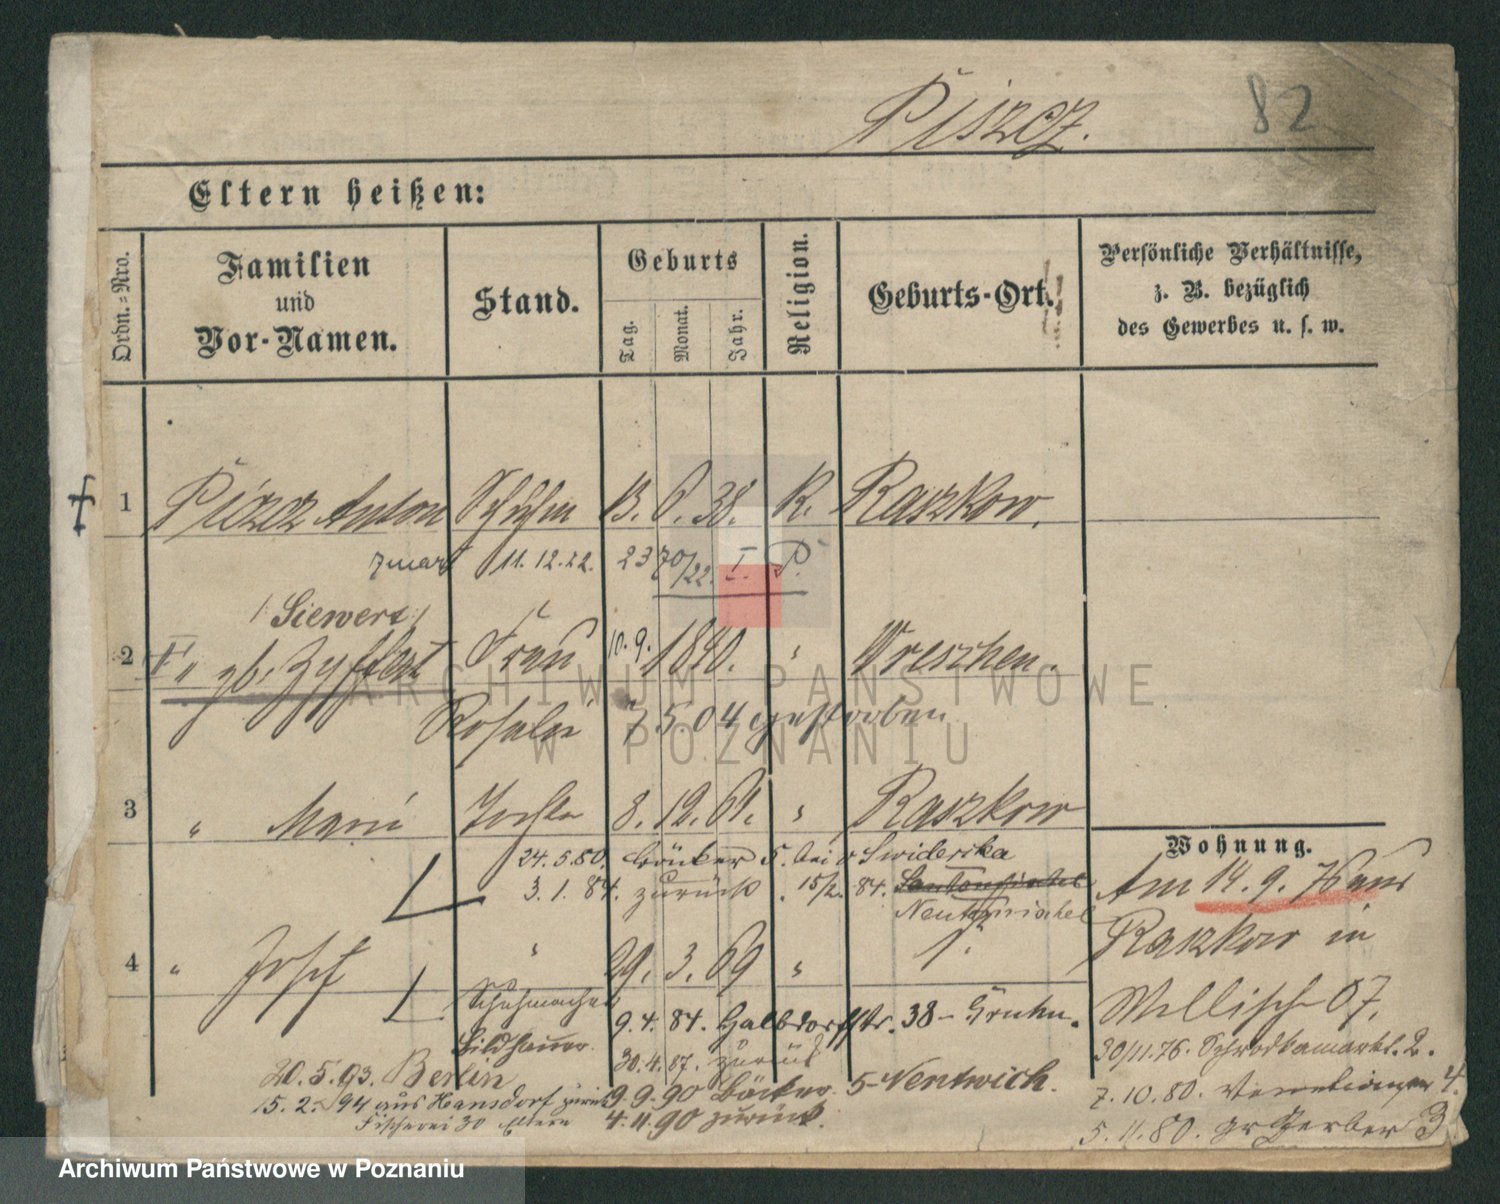 82
Piszcz.
Eltern heißen:
Ordn.=Nro.
Familien
und
Vor-Namen.
Stand.
Geburts
Tag.
Monat.
Jahr.
Religion.
Geburts-Ort.
Persönliche Verhältnisse,
z. B. bezüglich
des Gewerbes u. s. w.
1 Piszcz Anton 13. 6. 38. K. Raszkow.
11. 12. 22. 2370/22. I. P.
/: Siewert :/
2 " gb. Frau 10. 9. 1840. " Wreschen.
Rosalie 7 5. 04 gestorben
3 " Marie Tochter 8. 12. 61. " Raszkow
24. 5. 80. Bäcker 5. bei Swiderska
3. 1. 84. zurück. 15/2. 84.
Neutomischel
4 " Josef " 29. 3. 69 "
Schuhmacher 9. 4. 84. Halbdorfstr. 38 - Gruhn.
Bildhauer 30. 4. 87. zurück
20. 5. 93. Berlin 9. 9. 90 Bäcker 5 - Nentwich.
15. 2. 94 aus Hansdorf zurück 4. 11. 90 zurück.
Fischerei 30 Eltern
Wohnung.
Am 14. 9. 76 aus
Raszkow in
Wallisch 07.
30/11. 76. Schrodkamarkt. 2.
7. 10. 80. Venetianer 4.
5. 11. 80. gr Gerber 3
ARCHIWUM PAŃSTWOWE
W POZNANIU
Archiwum Państwowe w Poznaniu